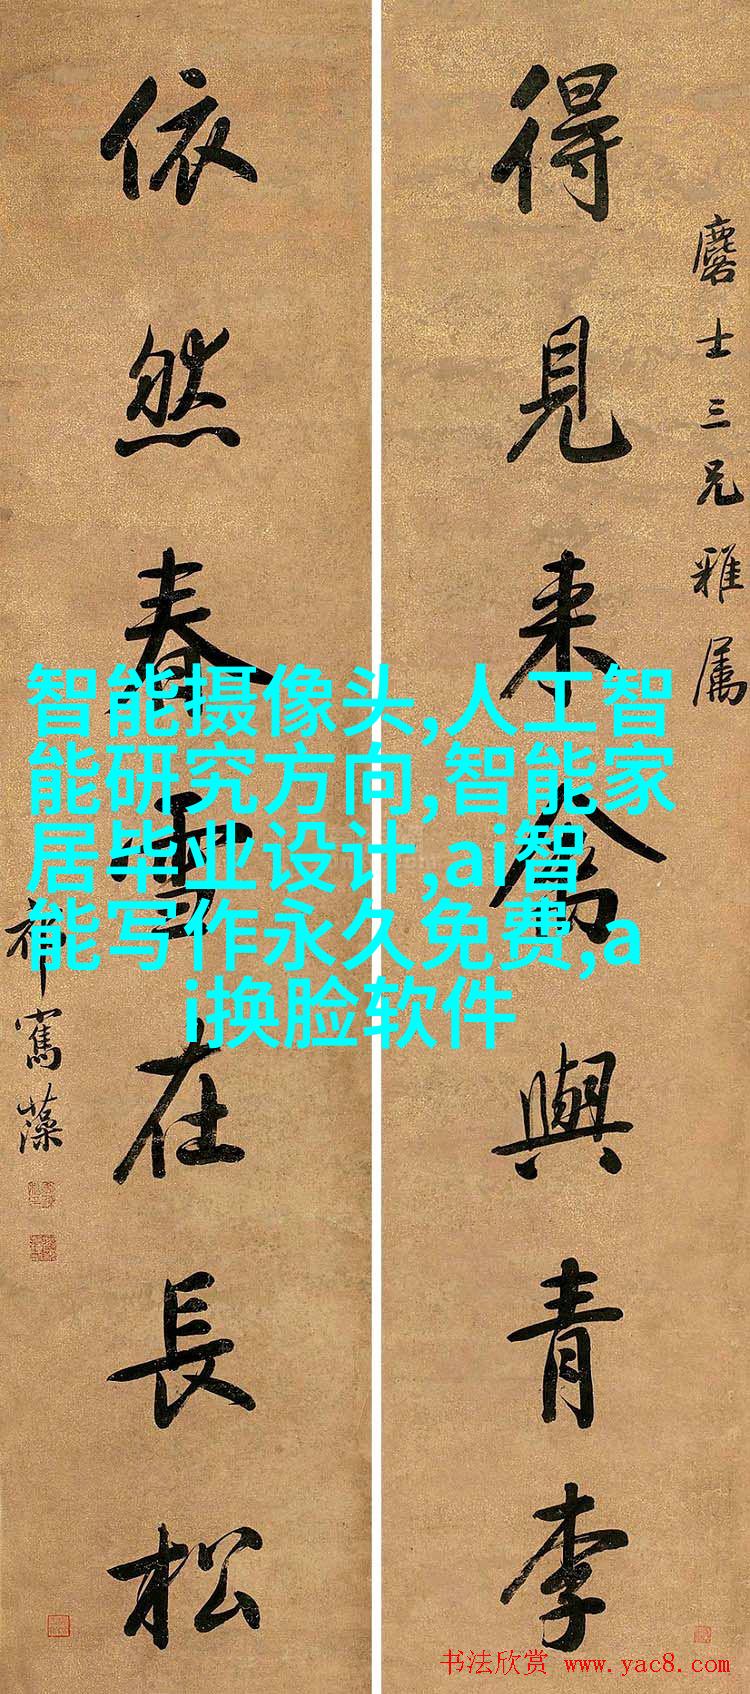 麐士三兄雅属
得見来禽與青李
依然春雪在長松
祁寯藻
智能摄像头,人工智
能研究方向,智能家
居毕业设计,ai智
能写作永久免费,a
i换脸软件
书法欣赏 www.yac8.com